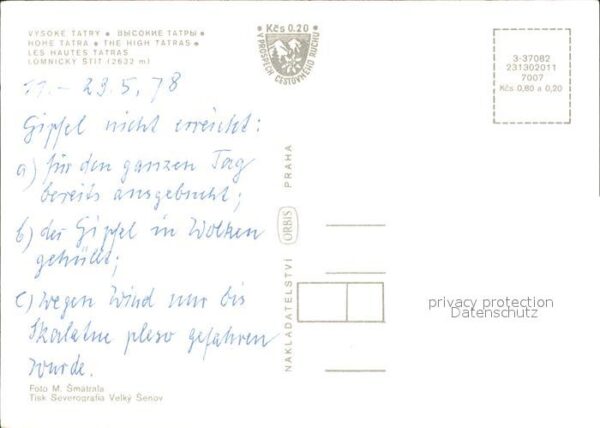 VYSOKÉ TATRY • ВЫСОКИЕ ТАТРЫ •
HOHE TATRA • THE HIGH TATRAS •
LES HAUTES TATRAS
LOMNICKÝ ŠTÍT (2632 m)
Kčs 0.20
V PROSPECH CESTOVNÉHO RUCHU
3-37082
231302011
7007
Kčs 0,60 a 0,20
23.5.78
Gipfel nicht erreicht:
a) für den ganzen Tag
bereits ausgebucht;
b) der Gipfel in Wolken
gehüllt;
c) wegen Wind nur bis
Skalnate pleso gefahren
wurde.
NAKLADATELSTVÍ ORBIS PRAHA
privacy protection
Datenschutz
Foto M. Šmatrala
Tisk Severografia Velký Šenov